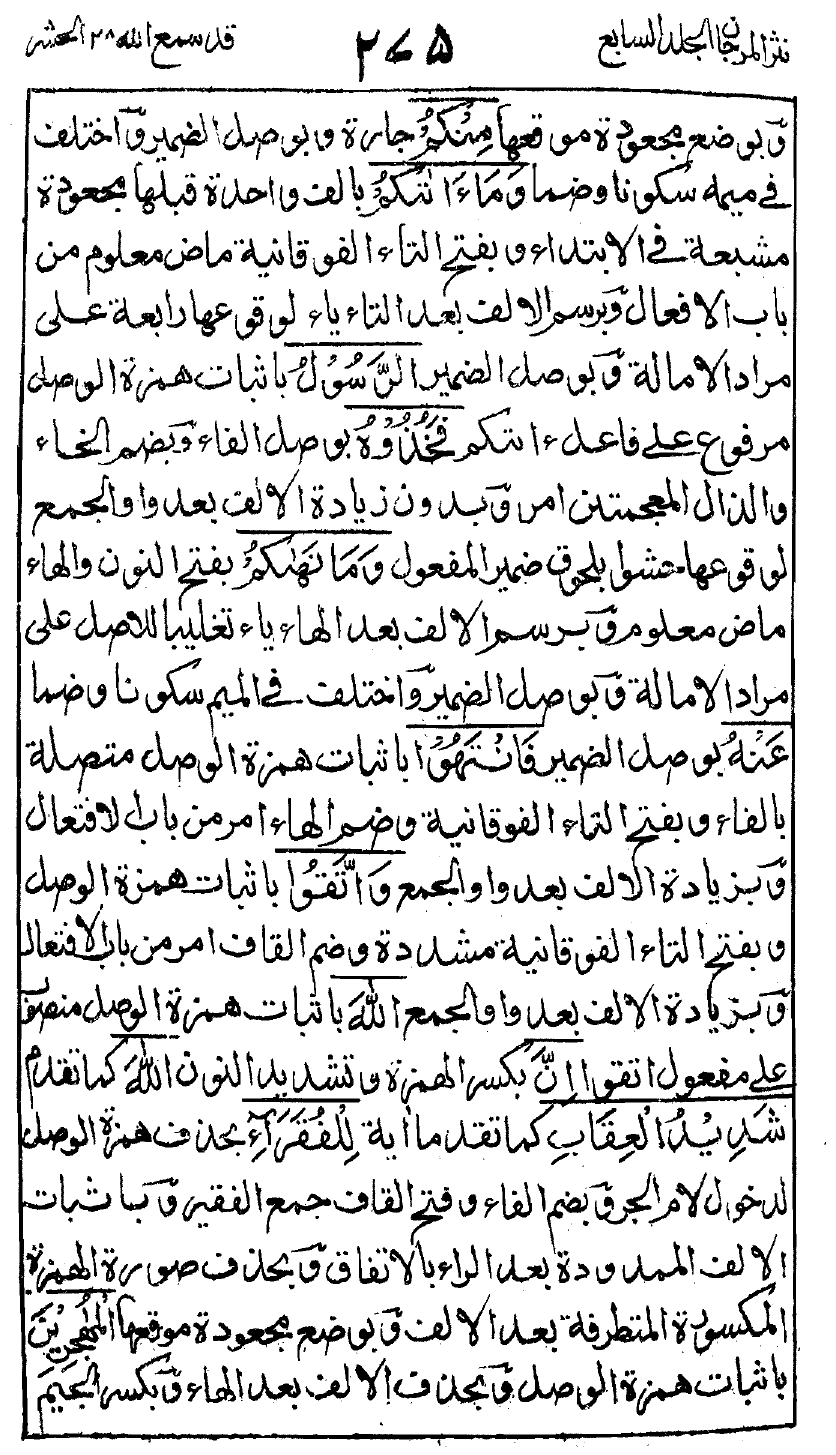 نثر المرجان الجلد السابع ٢٧٥ قد سمع الله ٢٨ الحشر
وَبوضع مجعودة موقعها مِنْكُمْ جارة وبوصل الضمير وَاختلف
فى ميمه سكونا وضما وَمَاءَاتٰىكُمْ بالف واحدة قبلها مجعودة
مشبعة فى الابتداء وبفتح التاء الفوقانية ماض معلوم من
باب الافعال وَبرسم الالف بعد التاء ياء لوقوعها رابعة على
مراد الامالة وَبوصل الضمير الرَّسُوْلُ باثبات همزة الوصل
مرفوع على فاعل ءاتىكم فَخُذُوْهُ بوصل الفاء وَبضم الخاء
والذال المعجمتين امر وَبدون زيادة الالف بعد واو الجمع
لوقوعها حشوا بلحوق ضمير المفعول وَمَا نَهٰىكُمْ بفتح النون والهاء
ماض معلوم وَبرسم الالف بعد الهاء ياء تغليبا للاصل على
مراد الامالة وَبوصل الضمير وَاختلف فى الميم سكونا وضما
عَنْهُ بوصل الضمير فَانْتَهُوْا باثبات همزة الوصل متصلة
بالفاء وبفتح التاء الفوقانية وضم الهاء امر من باب الافتعال
وَبزيادة الالف بعد واو الجمع وَاتَّقُوا باثبات همزة الوصل
وبفتح التاء الفوقانية مشددة وضم القاف امر من باب الافتعال
وَبزيادة الالف بعد واو الجمع اللهَ باثبات همزة الوصل منصوب
على مفعول اتقوا اِنَّ بكسر الهمزة وتشديد النون اللهَ كما تقدم
شَدِيْدُ الْعِقَابِ كما تقدما اية لِلْفُقَرَآءِ بحذف همزة الوصل
لدخول لام الجر وَبضم الفاء وفتح القاف جمع الفقير وَباثبات
الالف الممدودة بعد الراء بالاتفاق وَبحذف صورة الهمزة
المكسورة المتطرفة بعد الالف وَبوضع مجعودة موقعها الْمُهٰجِرِيْنَ
باثبات همزة الوصل وَبحذف الالف بعد الهاء وَبكسر الجيم